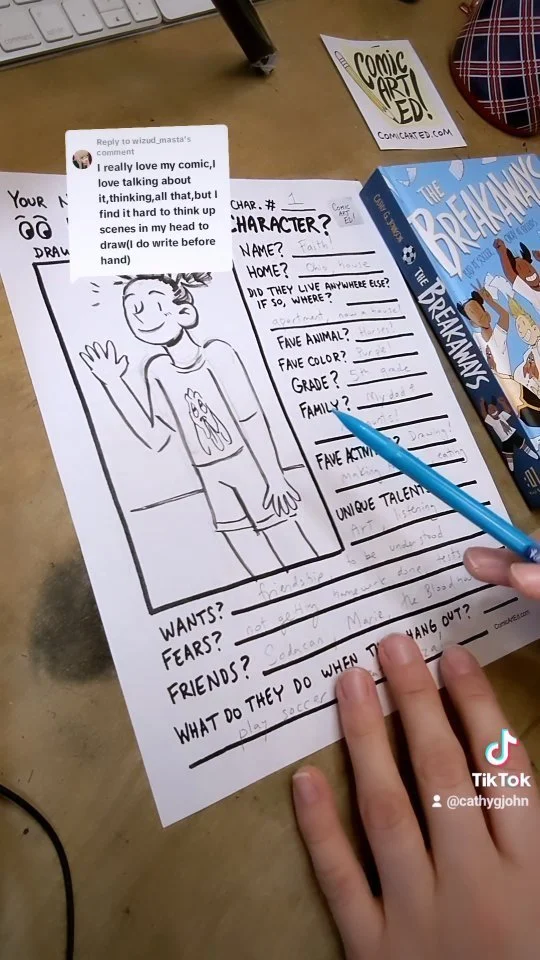 COMIC
ART
ED!
COMICARTED.COM
Reply to wizud_masta's
comment
I really love my comic,I
love talking about
it,thinking,all that,but I
find it hard to think up
scenes in my head to
draw(I do write before
hand)
YOUR
CHAR. # 1
CHARACTER?
COMIC
ART
ED!
DRAW
NAME? Faith!
HOME? Ohio, house
DID THEY LIVE ANYWHERE ELSE?
IF SO, WHERE?
apartment, now a house!
FAVE ANIMAL? Horses!
FAVE COLOR? Purple!
GRADE? 5th grade
FAMILY? My dad &
FAVE ACTIVITY? Drawing!
making eating
UNIQUE TALENTS
Art, listening
WANTS? friendship, to be understood
FEARS? not getting homework done, tests
FRIENDS? Sodacan, Marie, the
WHAT DO THEY DO WHEN THEY HANG OUT?
play soccer
ComicArtEd.com
CATHY G. JOHNSON
THE BREAKAWAYS
:01
THE
BREAKAWAYS
CATHY G. JOHNSON
TikTok
@cathygjohn